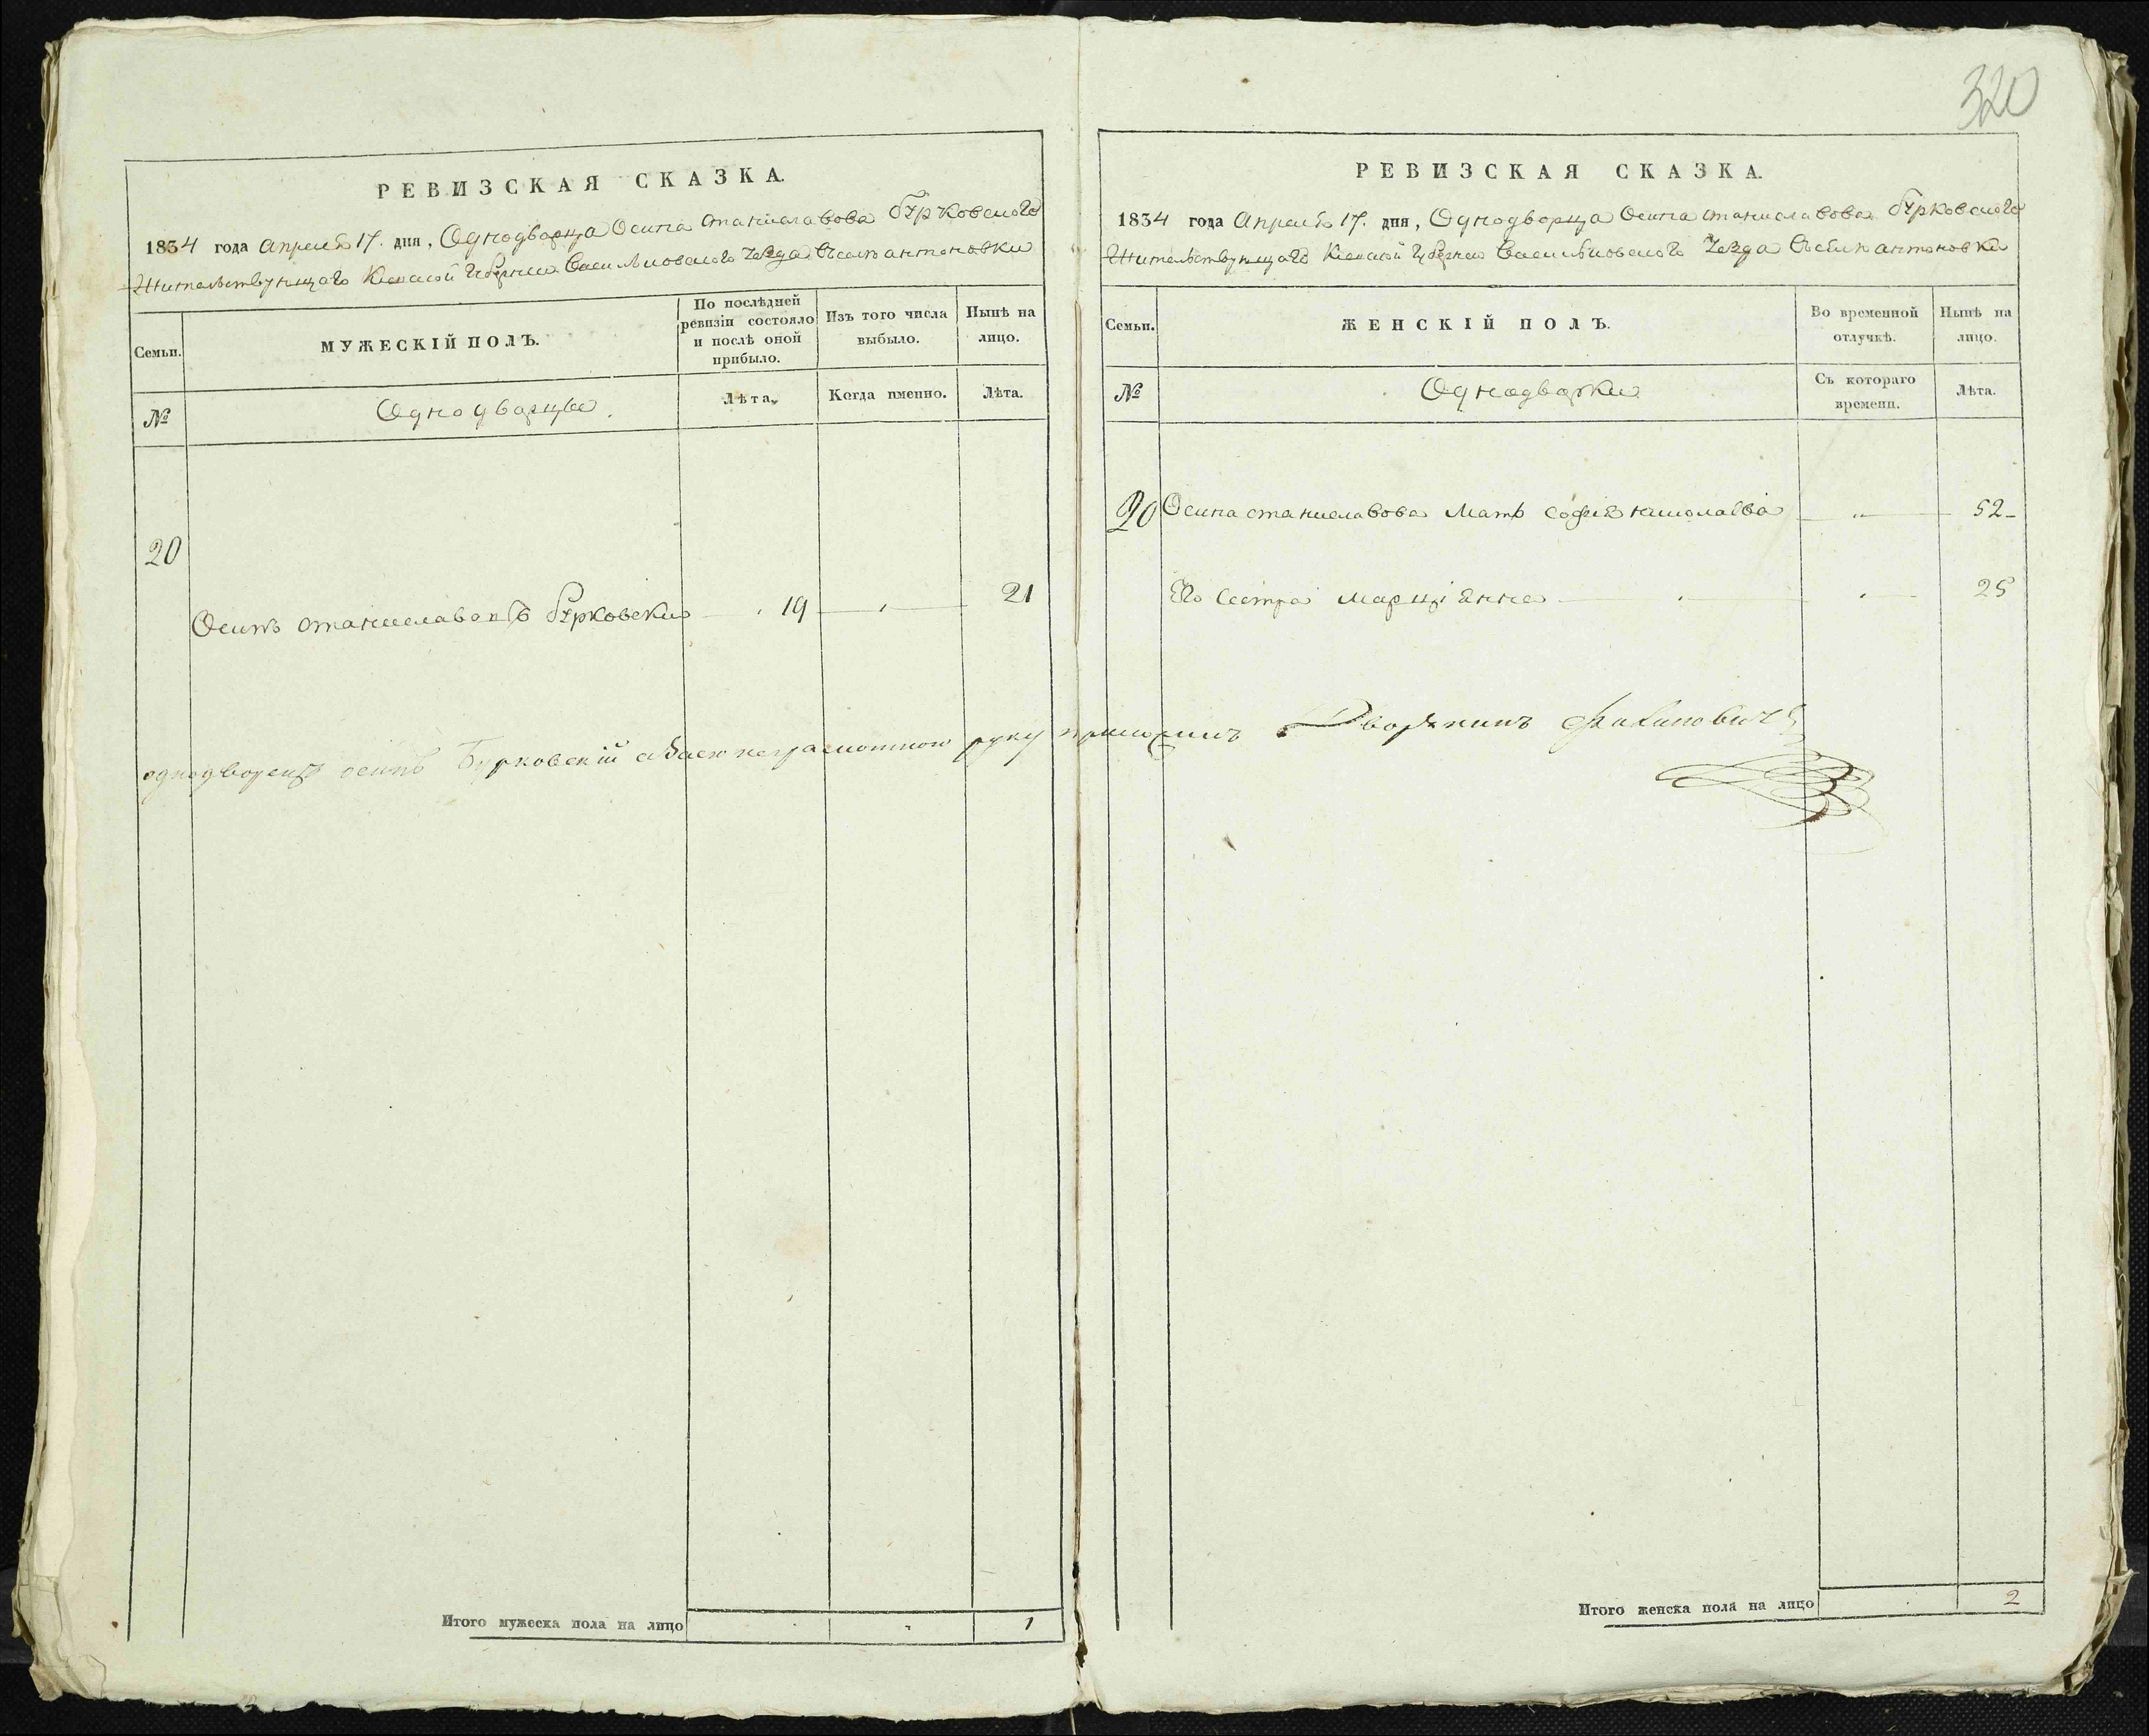 320
РЕВИЗСКАЯ СКАЗКА.
1834 года Апреля 17. дня, Однодворца Осипа Станиславова Бурковского
Жительствующаго Киевской Губернии Васильковского Уезда Въ селе Антоновки
Семьи.
МУЖЕСКІЙ ПОЛЪ.
По послѣдней ревизіи состояло и послѣ оной прибыло.
Изъ того числа выбыло.
Нынѣ на лицо.
№
Однодворцы.
Лѣта.
Когда именно.
Лѣта.
20
Осипъ Станиславовъ Бурковски 19 21
Итого мужеска пола на лицо 1
РЕВИЗСКАЯ СКАЗКА.
1834 года Апреля 17. дня, Однодворца Осипа Станиславова Бурковского
Жительствующаго Киевской Губернии Васильковского Уезда Въ селе Антоновки
Семьи.
ЖЕНСКІЙ ПОЛЪ.
Во временной отлучкѣ.
Нынѣ на лицо.
№
Однодворки
Съ котораго времени.
Лѣта.
20 Осипа Станиславова Мать София 52
Его Сестра Марциянна 25
однодворецъ осипъ Бурковскій а за его неграмотного руку приложилъ Дворянинъ
Итого женска пола на лицо 2